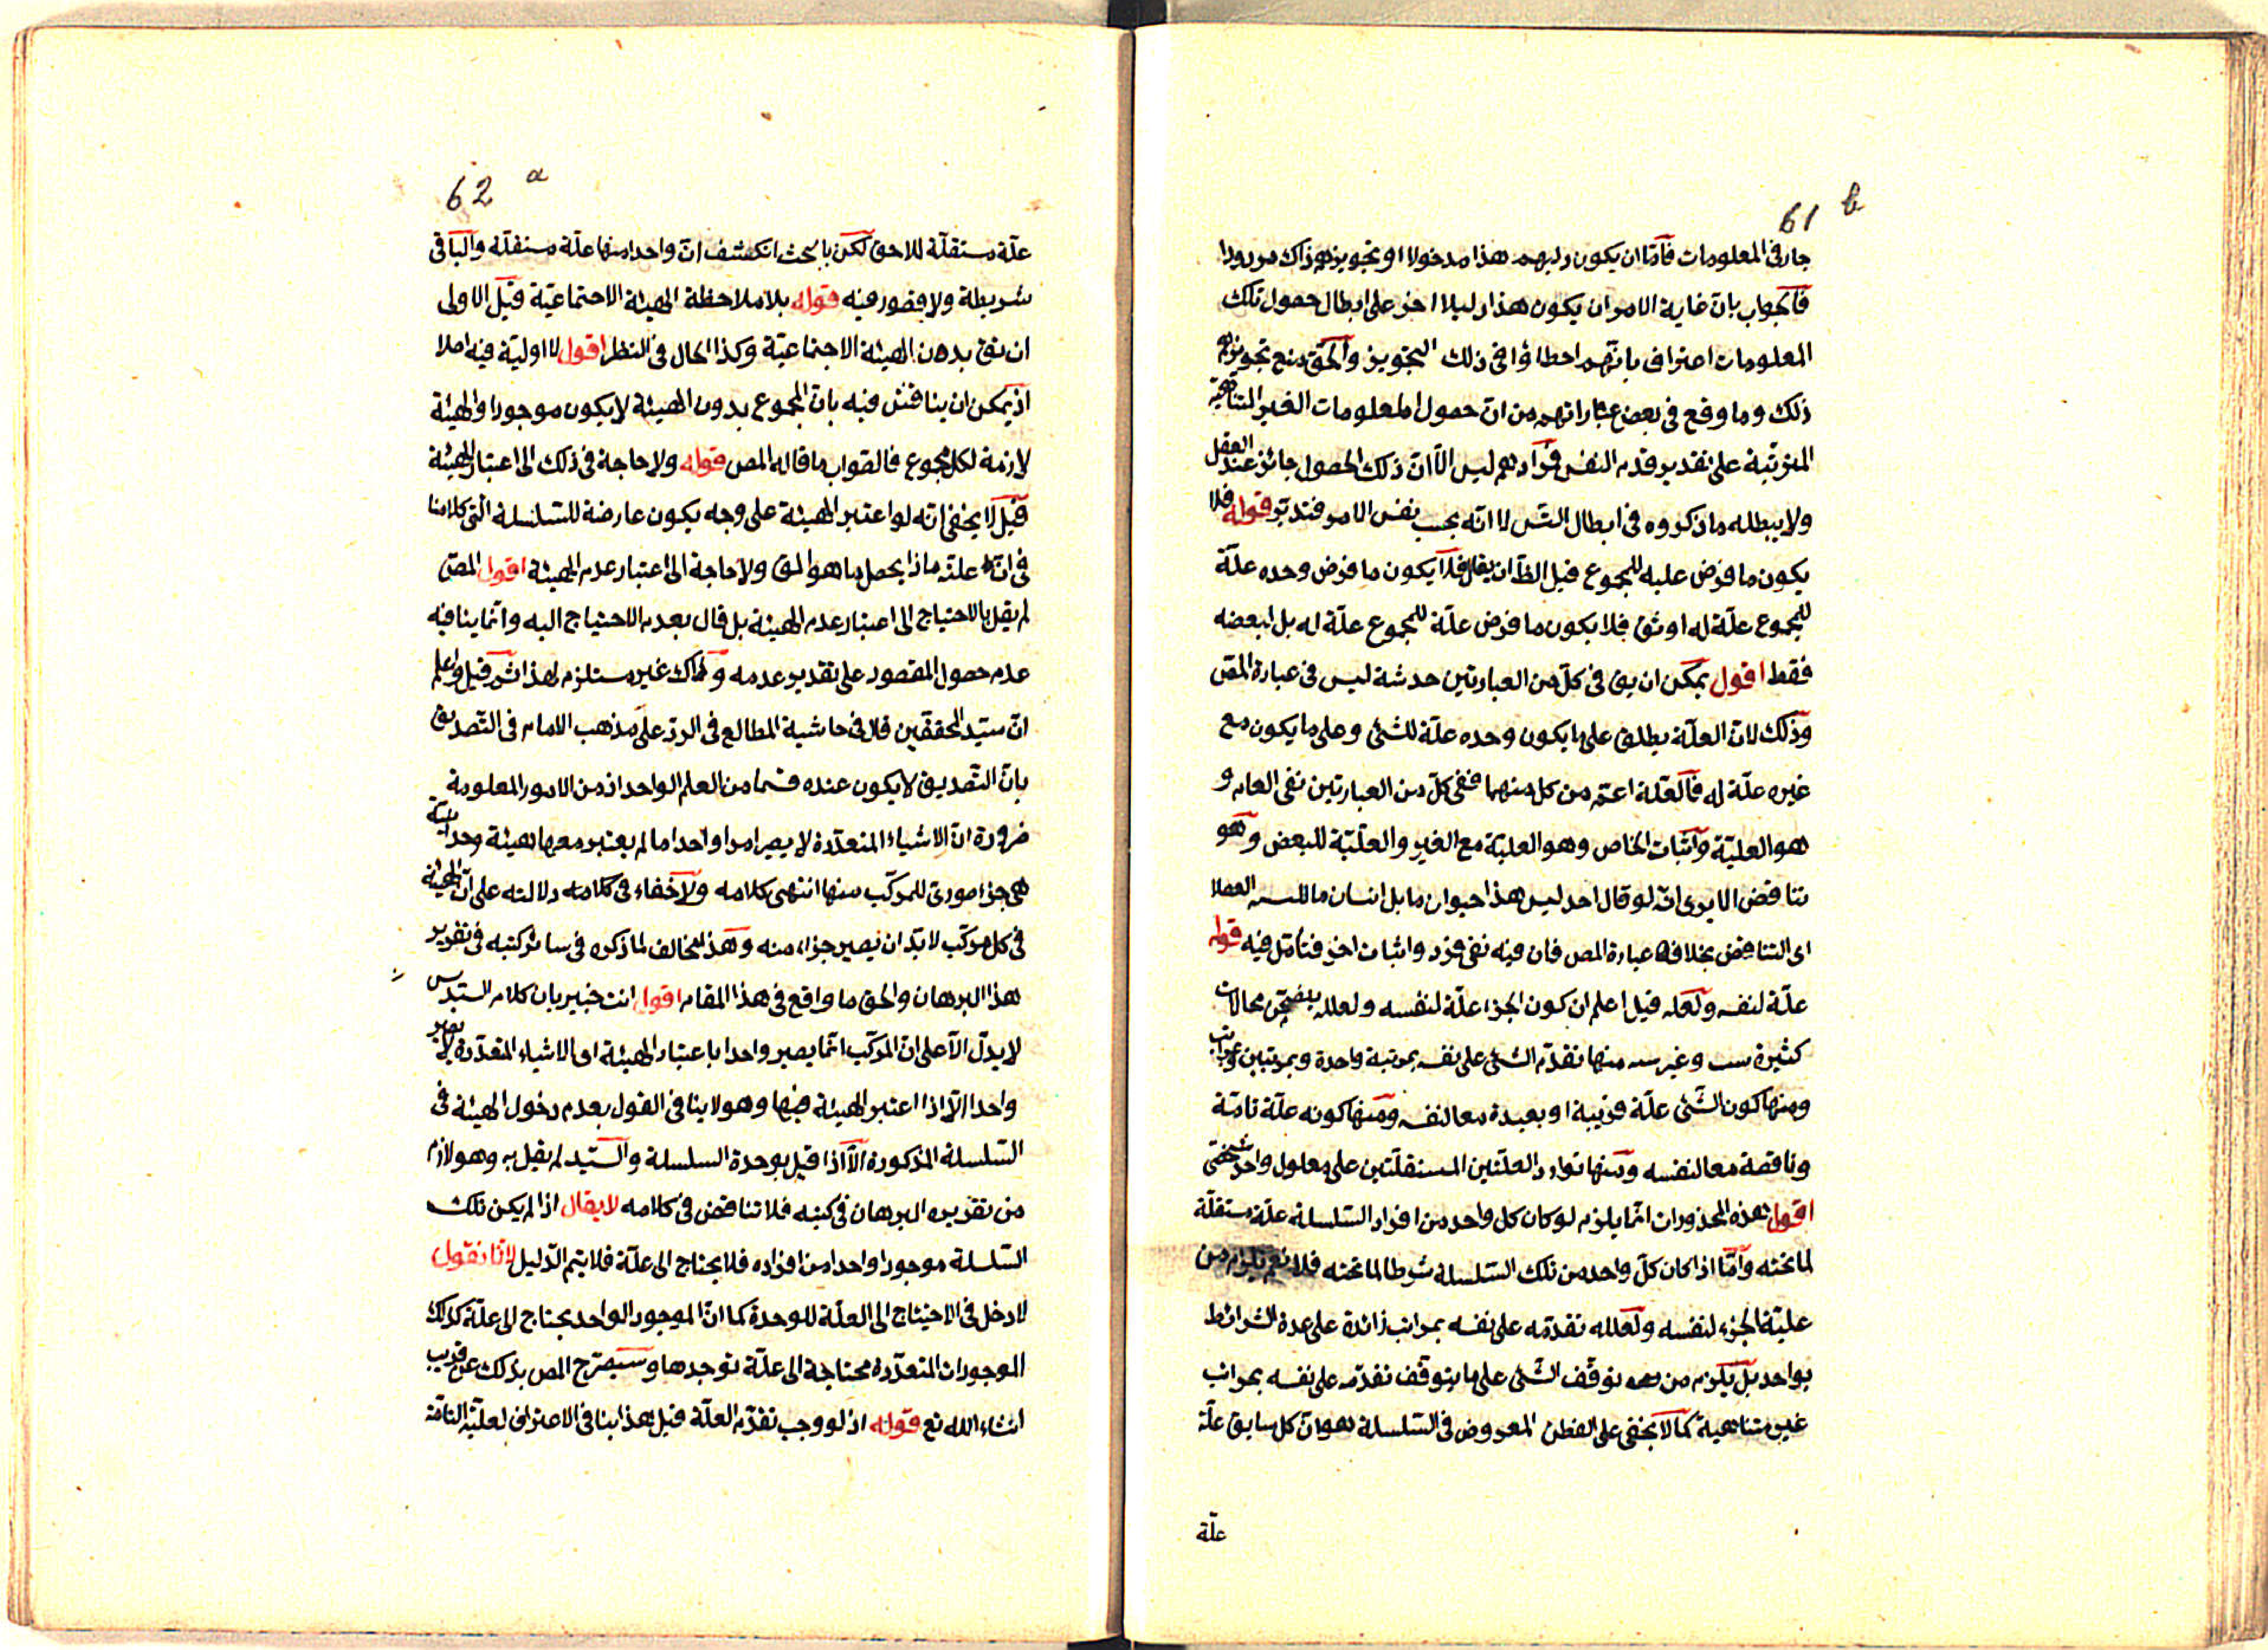 61 b
جار فى المعلومات فاما ان يكون دليهم هذا مدخولا او تجويزهم ذاك مردودا
فالجواب بان غاية الامر ان يكون هذا دليلا اخر على ابطال حصول تلك
المعلومات اعترافى بانهم احطاؤا فى ذلك التجويز والحق منع تجويزهم
ذلك وما وقع فى بعض عباراتهم من ان حصول المعلومات الغير المتناهية
المترتبة على تقدير قدم النفس فمرادهم ليس الا ان ذلك الحصول جائز عند العقل
ولا يبطله ما ذكروه فى ابطال التس لا انه بحسب نفس الامر فتدبر قوله فلا
يكون ما فرض عليه للمجموع قيل الظ ان يقال فلا يكون ما فرض وحده علّة
للمجموع علّة له اوثق فلا يكون ما فرض علّة للمجموع علّة له بل لبعضه
فقط اقول يمكن ان يق فى كلّ من العبارتين حدشة ليس فى عبارة المص
وذلك لان العلّة يطلق على ما يكون وحده علّة للشئ وعلى ما يكون مع
غيره علّة له فالعلّة اعم من كل منهما ففى كلّ من العبارتين نفى العام و
هو العليّة واثبات الخاص وهو العلية مع الغير والعلّيّة للبعض وهو
تناقض الا يرى انه لو قال احد ليس هذا حيوان ما بل انسان ما العقلا
اى التناقض بخلافه عبارة المص فان فيه نفى فرد واثبات اخر فتأمل فيه قوله
علّة لنفسه ولعله قيل اعلم ان كون الجزء علّة لنفسه ولعلله يتضمن محالات
كثيرة منها تقدّم الشئ على نفسه بمرتبة واحدة وبمرتبتين وبمراتب
ومنها كون الشئ علّة قريبة او بعيدة معا لنفسه ومنها كونه علّة تامّة
وناقصة معا لنفسه ومنها توارد العلتين المستقلّتين على معلول واحد شخصى
اقول هذه المحذورات انما يلزم لو كان كل واحد من افراد السلسلة علّة مستقلّة
لما تحته وامّا اذا كان كلّ واحد من تلك السّلسلة شرطا لما تحته فلا نعم يلزم من
عليّة الجزء لنفسه ولعلله تقدمه على نفسه بمراتب زائدة على عدة الشرائط
بواحد بل يلزم من توقف الشئ على ما يتوقف تقدّمه على نفسه بمراتب
غير متناهية كما لا يخفى على الفطن المعروض فى السّلسلة هو ان كل سابق علّة
علّة
62 a
علّة مستقلّة للاحق لكن بالبحث انكشف ان واحدا منها علّة مستقلّة والباقى
شريطة ولا قصور فيه قوله بلا ملاحظة الهيئة الاجتماعيّة قيل الاولى
ان يق بدون الهيئة الاجتماعيّة وكذا الحال فى النظر اقول لا اوليّة فيه اصلا
اذ يمكن ان يناقش فيه بان المجموع بدون الهيئة لا يكون موجودا والهيئة
لازمة لكل مجموع فالصواب ما قاله المص قوله ولا حاجة فى ذلك الى اعتبار الهيئة
قيل لا يخفى انه لو اعتبر الهيئة على وجه يكون عارضة للسّلسلة التى كلامنا
فى ان علته ماذا يحصل ما هو المق ولا حاجة الى اعتبار عدم الهيئة اقول المص
لم يقل بالاحتياج الى اعتبار عدم الهيئة بل قال بعدم الاحتياج اليه وانما ينافيه
عدم حصول المقصود على تقدير عدمه وذاك غير مستلزم لهذا ثم قيل واعلم
ان سيّد المحققين قال فى حاشية المطالع فى الردّ على مذهب الامام فى التّصديق
بان التّصديق لا يكون عنده قسما من العلم الواحد اذ من الامور المعلومة
ضرورة انّ الاشياء المتعدّدة لا يصير امرا واحدا ما لم يعتبر معها هيئة وحدانية
هى جزء صورى للمركّب منها انتهى كلامه ولا خفاء فى كلامه دلالته على ان الهيئة
فى كل مركّب لا بدّ ان يصير جزءا منه وهذا مخالف لما ذكره فى سائر كتبه فى تقرير
هذا البرهان والحق ما واقع فى هذا المقام اقول انت خبير بان كلام السيّد س
لا يدلّ الّا على انّ المركّب انما يصير واحدا باعتبار الهيئة اى الاشياء المتعدّدة لا يصير
واحدا الّا اذا اعتبر الهيئة فيها وهو لا ينافى القول بعدم دخول الهيئة فى
السّلسلة المذكورة الّا اذا قيل بوحدة السلسلة والسّيد لم يقل به وهو لازم
من تقديره البرهان فى كتبه فلا تناقض فى كلامه لا يقال اذا لم يكن تلك
السّلسلة موجودا واحدا من افراده فلا يحتاج الى علّة فلا يتم الدّليل لانا نقول
لا دخل فى الاحتياج الى العلّة للوحدة كما انّ الموجود الواحد يحتاج الى علّة كذلك
الموجودات المتعدّدة محتاجة الى علّة توجدها وسيصرّح المص بذلك عن قريب
انشاء الله تع قوله اذ لو وجب تقدّم العلّة قيل هذا ينافى الاعتراف لعليّة التامّة